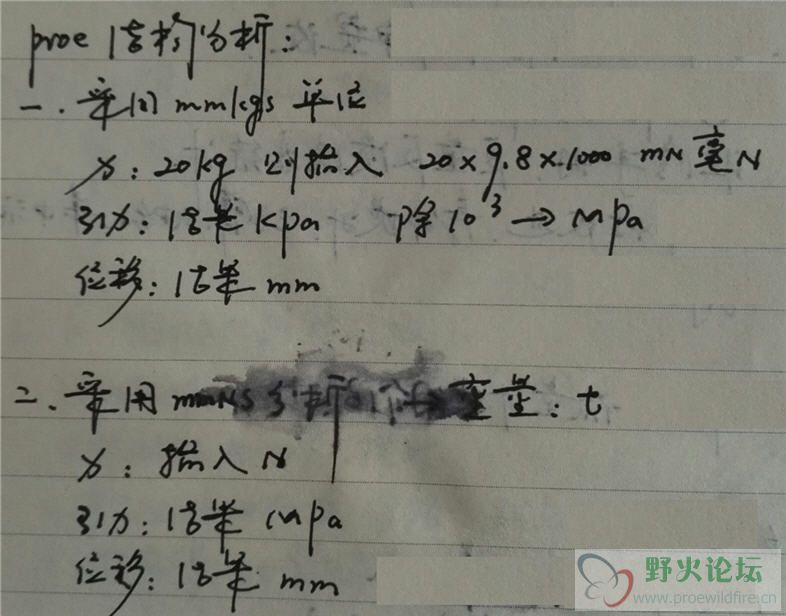 proe 结构分析:
一. 采用 mmkgs 单位
力: 20kg 则输入 20×9.8×1000 mN 毫N
引力: 结果 Kpa 除10³ → Mpa
位移: 结果 mm
二. 采用 mmNs 分析 质量: t
力: 输入 N
引力: 结果 Mpa
位移: 结果 mm
野火论坛
www.proewildfire.cn